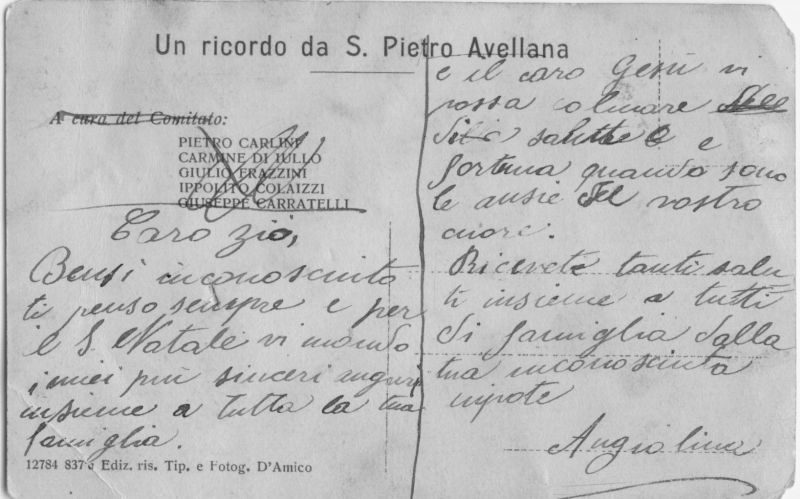 Un ricordo da S. Pietro Avellana
A cura del Comitato:
PIETRO CARLINI
CARMINE DI IULLO
GIULIO FRAZZINI
IPPOLITO COLAIZZI
GIUSEPPE CARRATELLI
Caro zio,
Bensì inconosciuta
ti penso sempre e per
il S. Natale vi mando
i miei più sinceri auguri
insieme a tutta la tua
famiglia.
12784 837 Ediz. ris. Tip. e Fotog. D'Amico
e il caro Gesù vi
possa colmare
di salute e
fortuna quando sono
le ansie del vostro
cuore.
Ricevete tanti salu
ti insieme a tutti
di famiglia dalla
tua inconosciuta
nipote
Angiolina